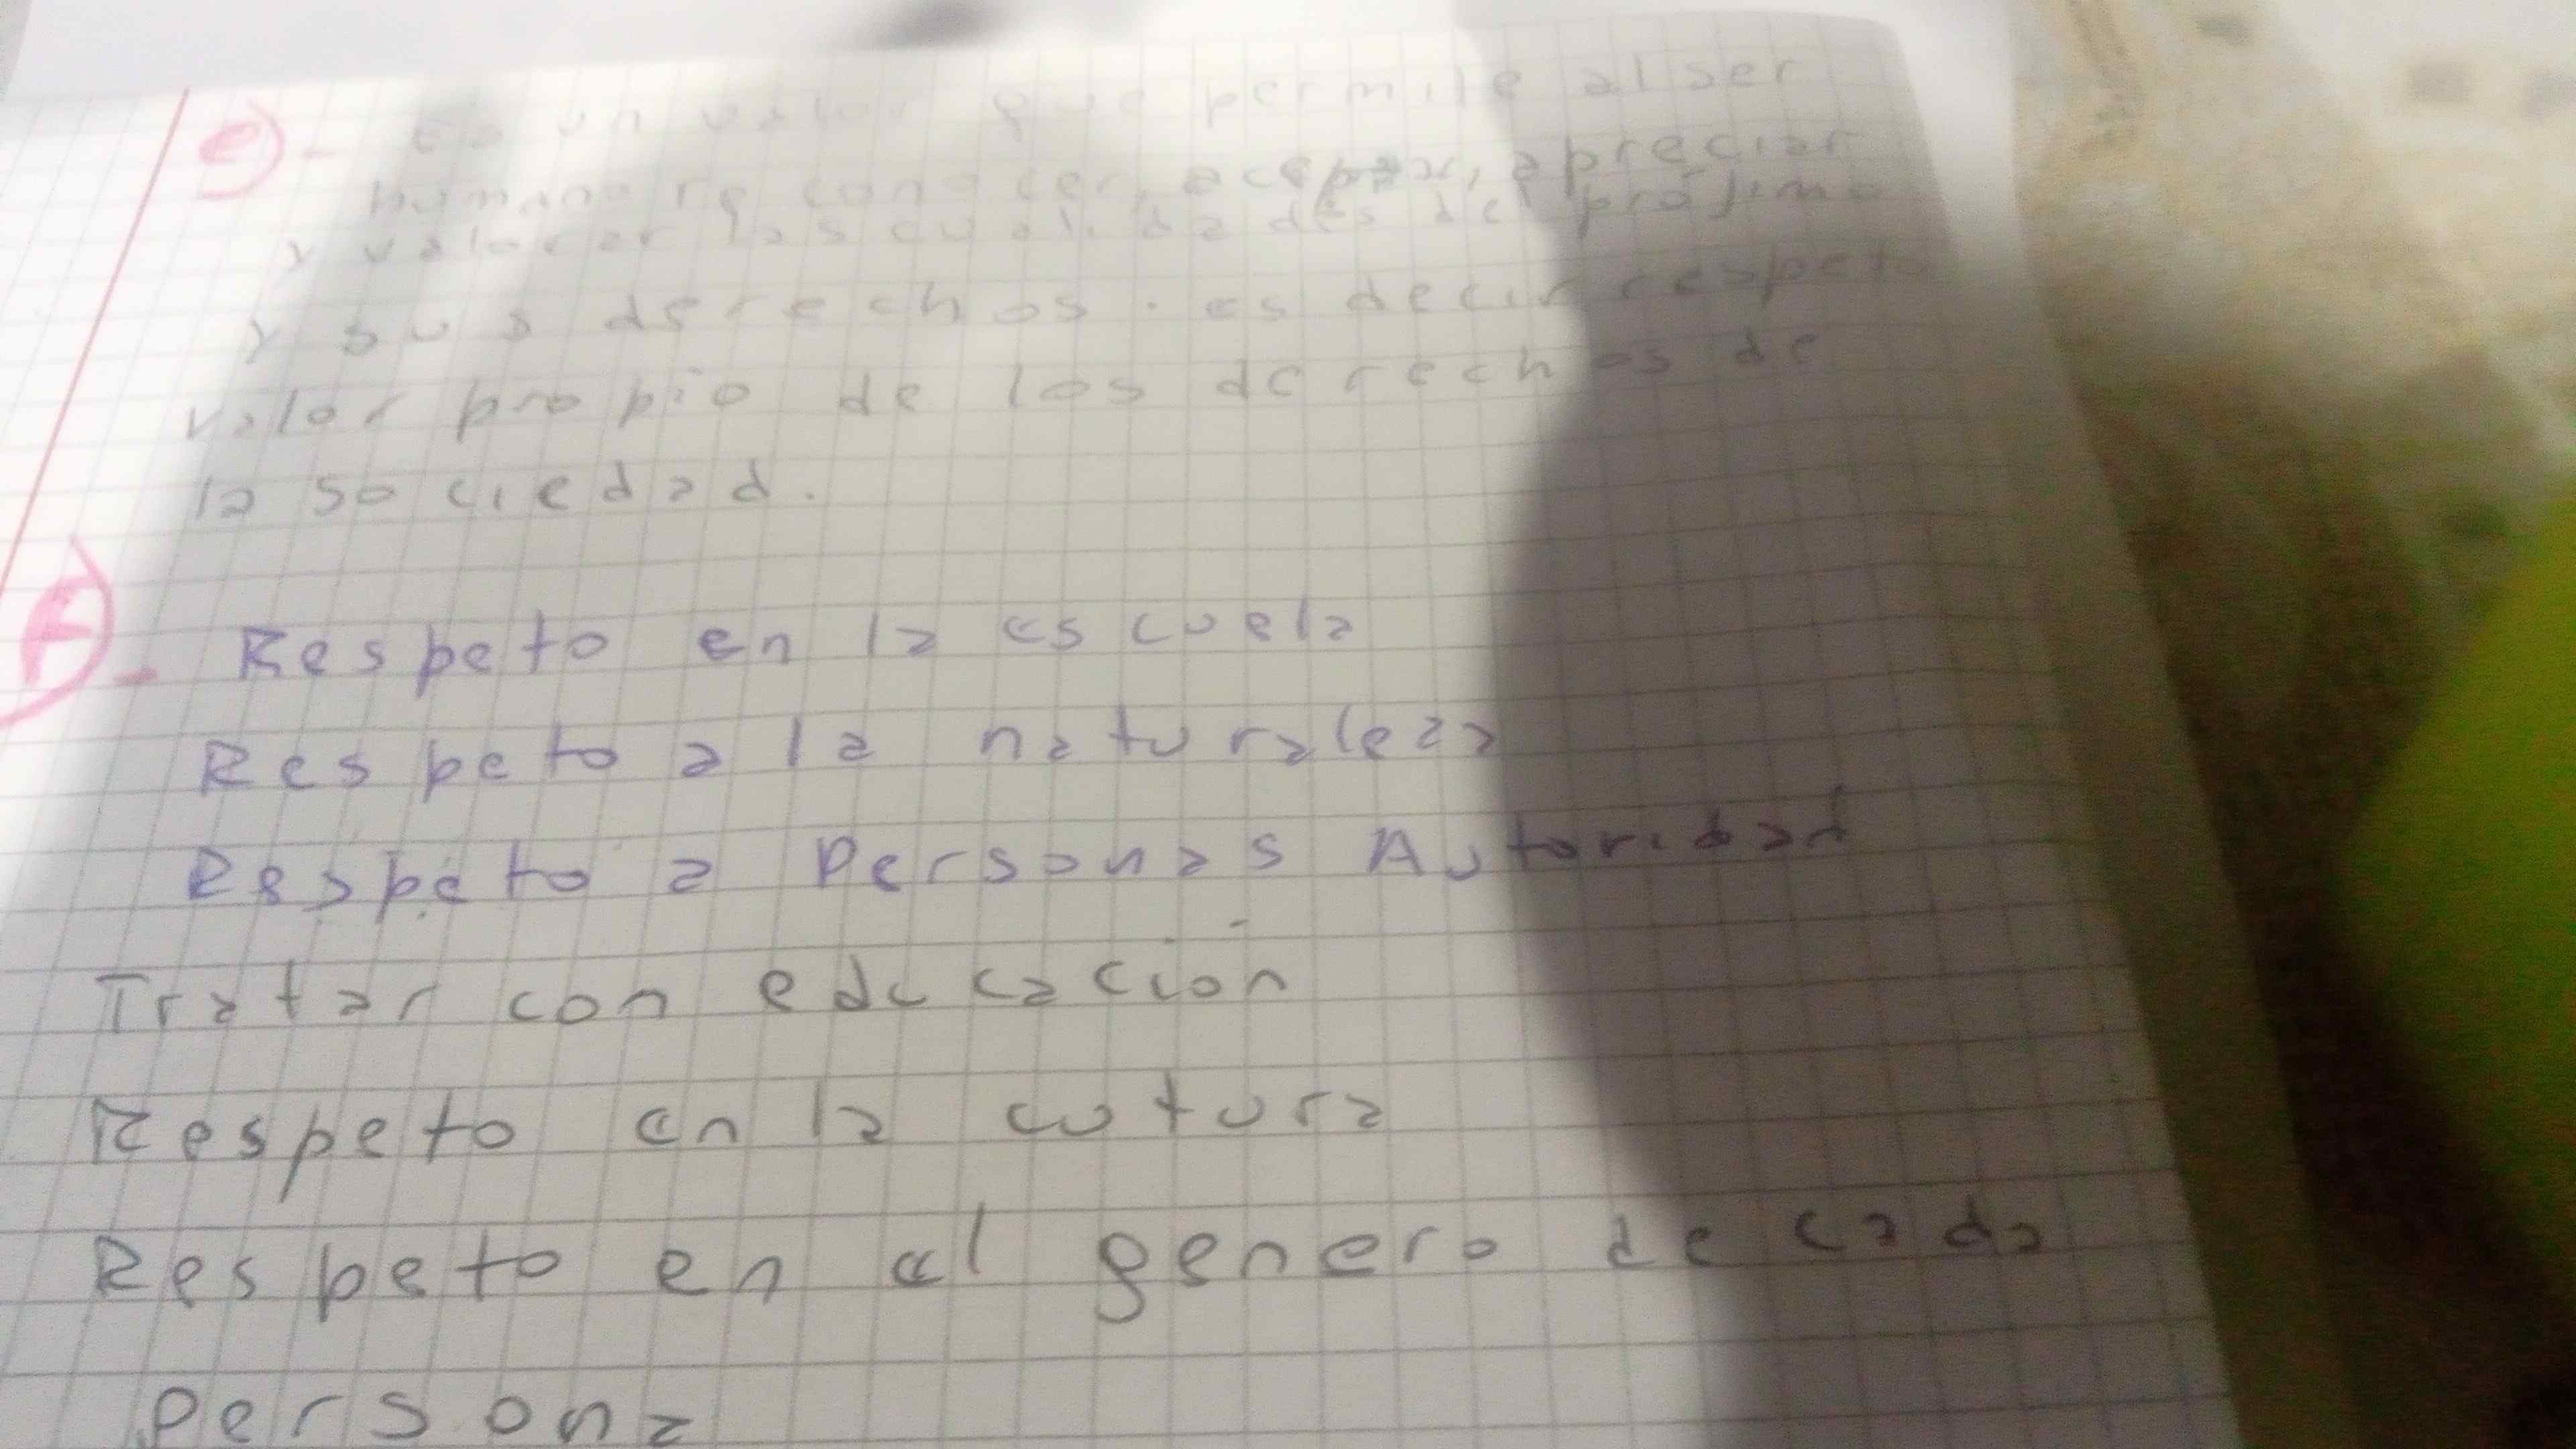 e)- Es un valor que permite al ser
humano reconocer, aceptar, apreciar
y valorar las cualidades del projimo
y sus derechos. es decir respeto
valor propio de los derechos de
la sociedad.
f)- Respeto en la escuela
Respeto a la naturaleza
Respeto a Personas Autoridad
Tratar con educación
Respeto en la cutura
Respeto en el genero de cada
persona